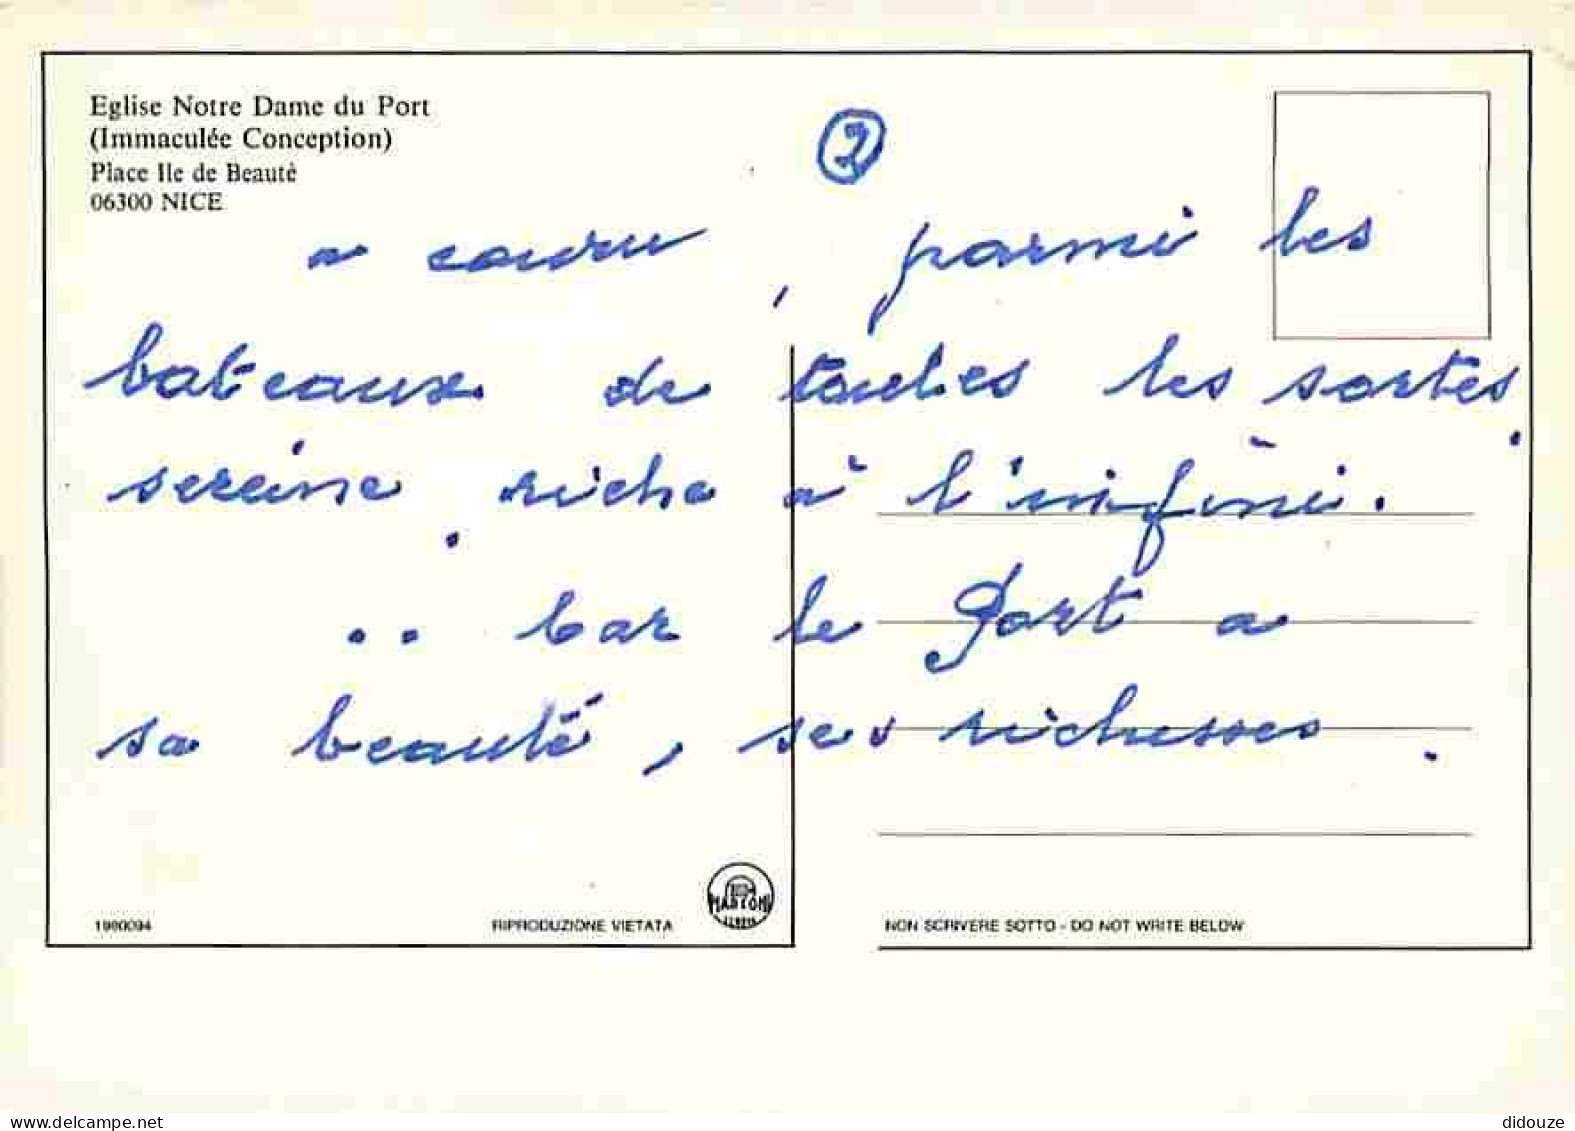 Eglise Notre Dame du Port
(Immaculée Conception)
Place Ile de Beauté
06300 NICE
2
a couru, parmi les
bateaux de toutes les sortes.
sereine riche à l'infini.
.. Car le Port a
sa beauté, ses richesses.
1980094
RIPRODUZIONE VIETATA
NON SCRIVERE SOTTO - DO NOT WRITE BELOW
www.delcampe.net
didouze